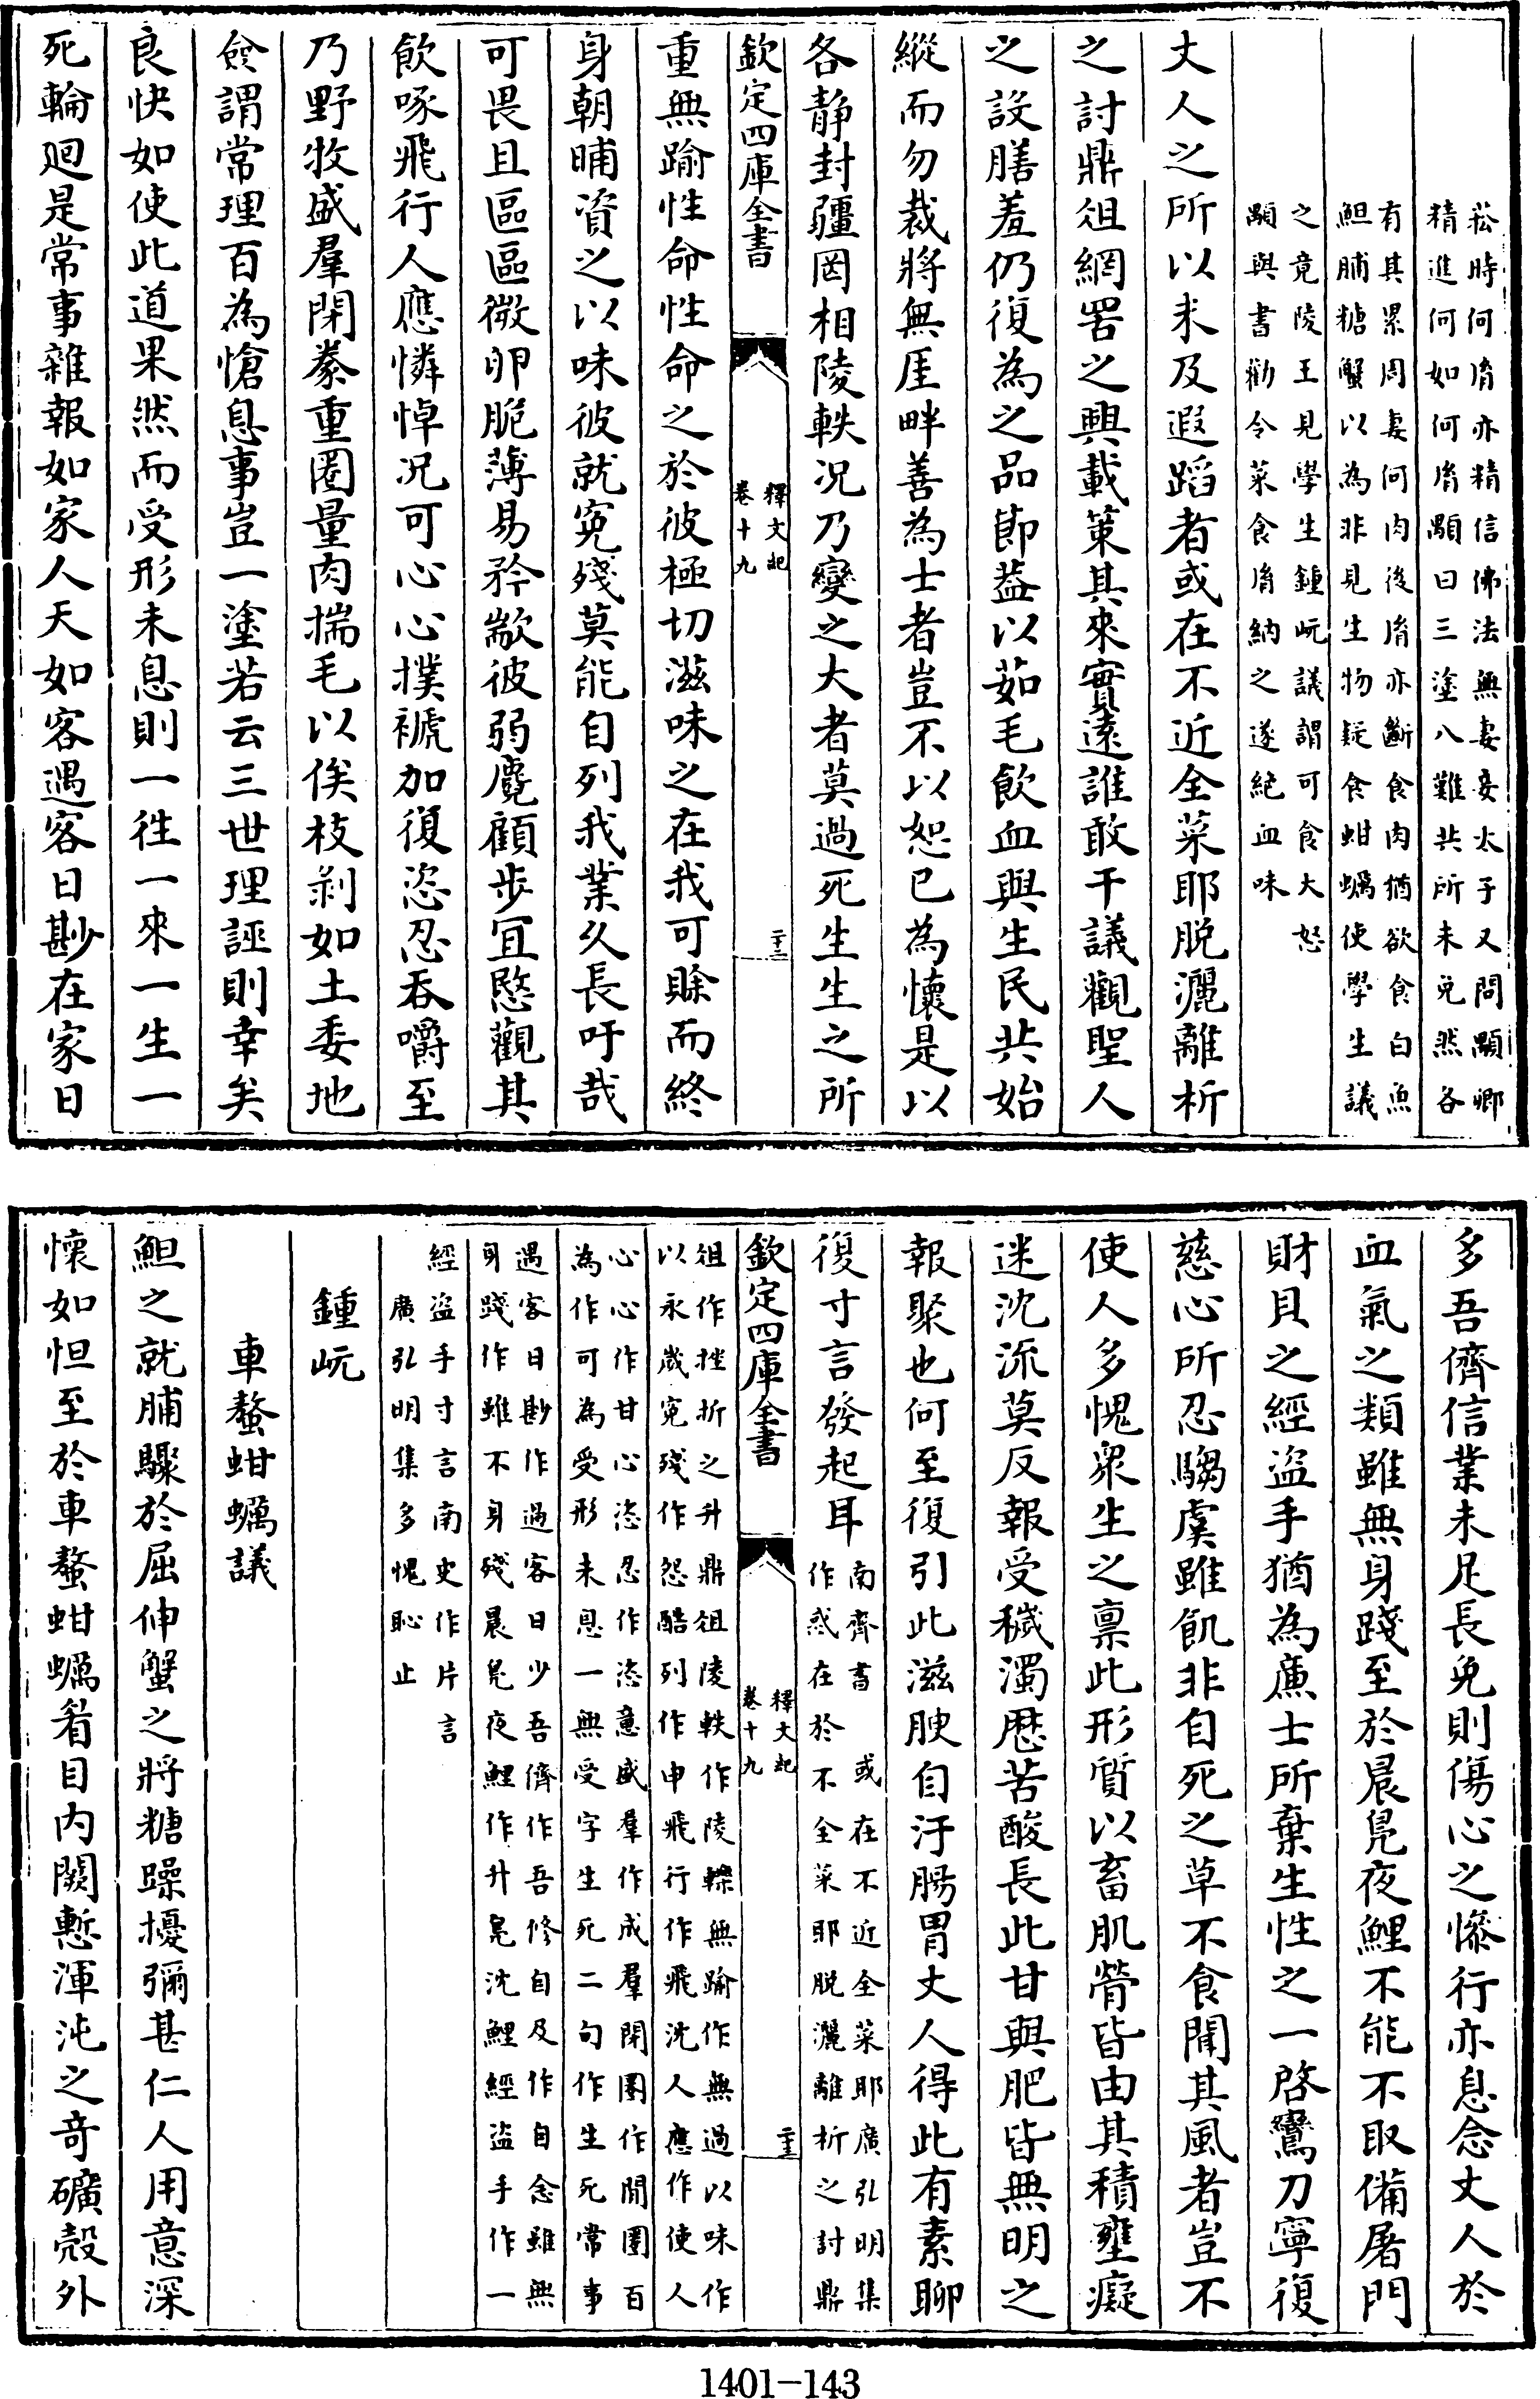 菘時何𦙍亦精信佛法無妻妾太子又問顒卿
精進何如何𦙍顒曰三塗八難共所未免然各
有其累周妻何肉後𦙍亦斷食肉猶欲食白魚
䱇脯糖蟹以為非見生物疑食蚶蠣使學生議
之竟陵王見學生鍾岏議謂可食大怒
顒與書勸令菜食𦙍納之遂絶血味
丈人之所以未及遐蹈者或在不近全菜耶脱灑離析
之討鼎俎網罟之興載䇿其來實逺誰敢干議觀聖人
之設膳羞仍復為之品節葢以茹毛飲血與生民共始
縱而勿裁將無厓畔善為士者豈不以恕已為懷是以
各静封疆罔相陵軼况乃變之大者莫過死生生之所
欽定四庫全書
釋文紀
卷十九
二十二
重無踰性命性命之於彼極切滋味之在我可賒而終
身朝晡資之以味彼就寃殘莫能自列我業久長吁哉
可畏且區區微卵脆薄易矜歊彼弱麑顧步宜愍觀其
飲啄飛行人應憐悼况可心心撲褫加復恣忍吞嚼至
乃野牧盛羣閉豢重圈量肉揣毛以俟枝剥如土委地
僉謂常理百為愴息事豈一塗若云三世理誣則幸矣
良快如使此道果然而受形未息則一徃一來一生一
死輪廻是常事雜報如家人天如客遇客日尠在家日
多吾儕信業未足長免則傷心之慘行亦息念丈人於
血氣之類雖無身踐至於晨鳬夜鯉不能不取備屠門
財貝之經盜手猶為廉士所棄生性之一啓鸞刀寧復
慈心所忍騶虞雖飢非自死之草不食聞其風者豈不
使人多愧衆生之稟此形質以畜肌膋皆由其積壅癡
迷沈流莫反報受穢濁歴苦酸長此甘與肥皆無明之
報聚也何至復引此滋腴自汙腸胃丈人得此有素聊
復寸言發起耳
南齊書 或在不近全菜耶廣引明集
作惑在於不全菜耶脱灑離析之討鼎
欽定四庫全書
釋文紀
卷十九
二十三
俎作挫折之升鼎俎陵軼作陵轢無踰作無過以味作
以永歲寃殘作怨酷列作申飛行作飛沈人應作使人
心心作甘心恣忍作恣意盛羣作成羣閉圂作閉圈百
為作可為受形未息一無受字生死二句作生死常事
遇客日尠作過客日少吾儕作吾修自及作自念雖無
身踐作雖不身殘晨鳬夜鯉作升鳬沈鯉經盜手作一
經盜手寸言南史作片言
廣引明集多愧恥止
鍾岏
車螯蚶蠣議
䱇之就脯驟於屈伸蟹之將糖躁擾彌甚仁人用意深
懷如怛至於車螯蚶蠣睂目内闕慙渾沌之竒礦殻外
1401-143